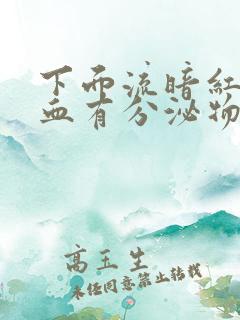 下而流暗红
血有分泌物
高玉生
未经同意禁止转载